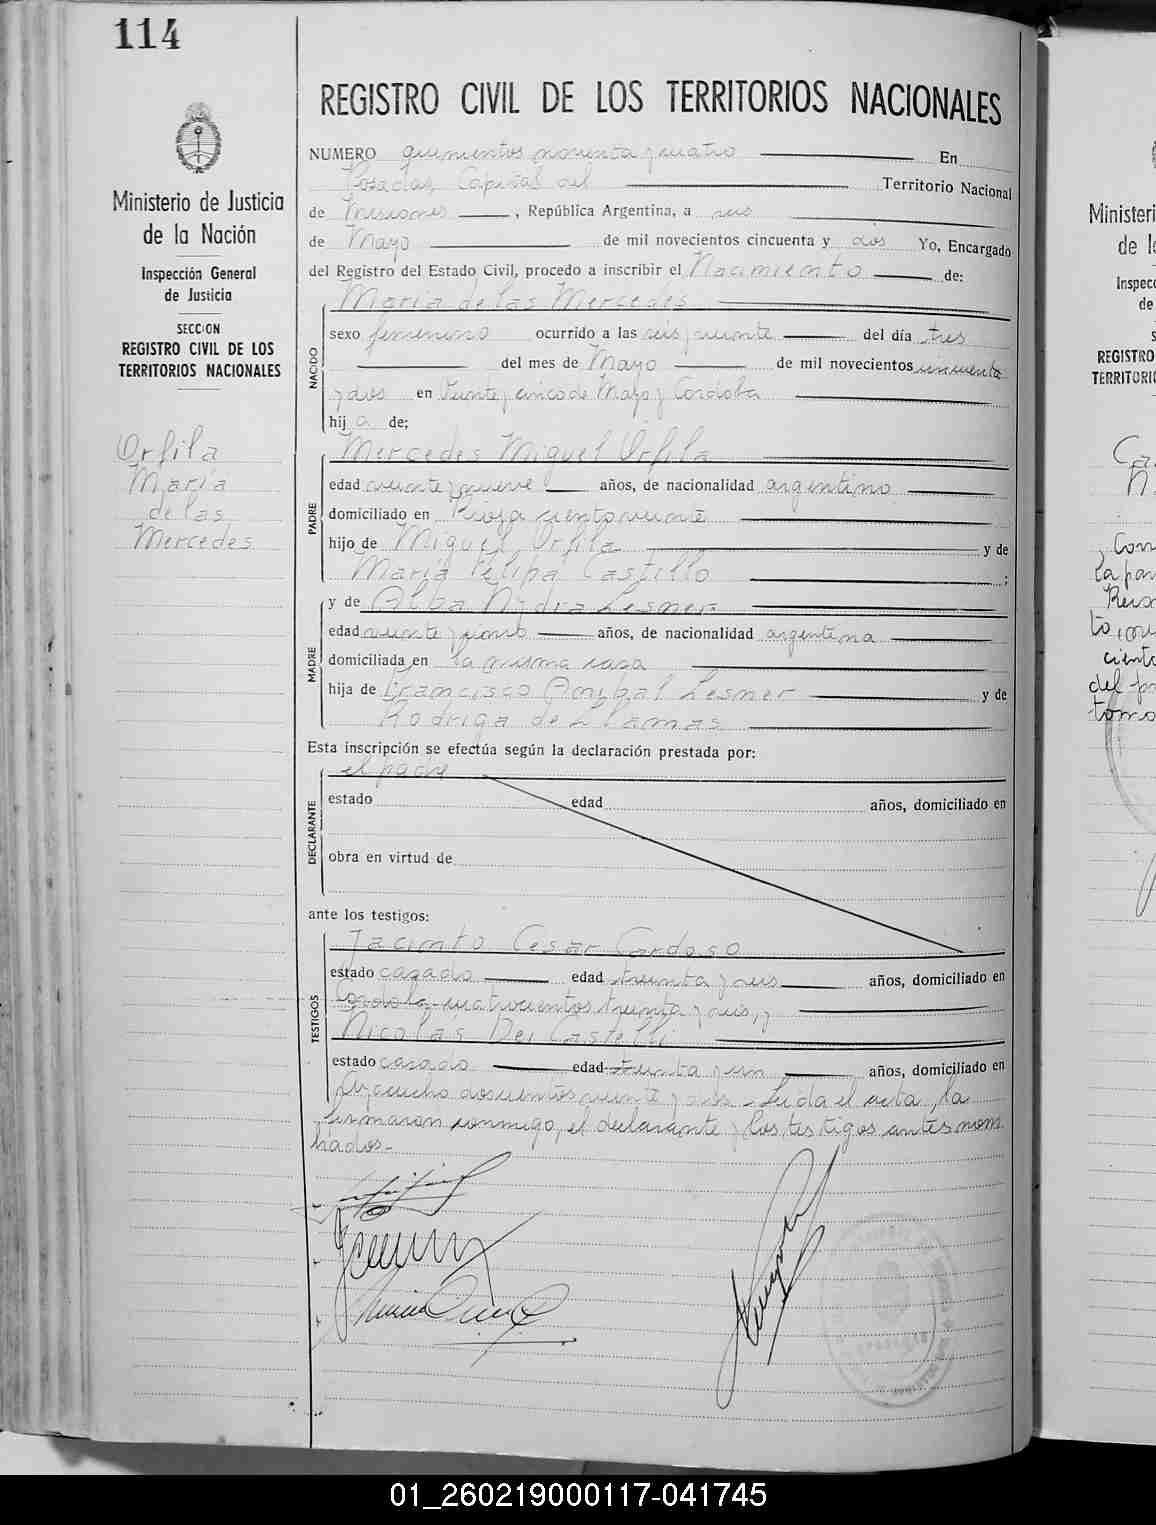 114
Ministerio de Justicia
de la Nación
Inspección General
de Justicia
SECCION
REGISTRO CIVIL DE LOS
TERRITORIOS NACIONALES
Orfila
María
de las
Mercedes
REGISTRO CIVIL DE LOS TERRITORIOS NACIONALES
NUMERO quinientos noventa y cuatro En
Posadas, Capital del Territorio Nacional
de Misiones, República Argentina, a seis
de Mayo de mil novecientos cincuenta y dos Yo, Encargado
del Registro del Estado Civil, procedo a inscribir el Nacimiento de:
María de las Mercedes
NACIDO
sexo femenino ocurrido a las seis y veinte del día tres
del mes de Mayo de mil novecientos cincuenta
y dos en Veinte y cinco de Mayo y Cordoba
hij a de;
Mercedes Miguel Orfila
PADRE
edad veinte y nueve años, de nacionalidad argentino
domiciliado en Rioja ciento veinte
hijo de Miguel Orfila y de
María Felipa Castillo ;
y de Alba Nydra Lesner
MADRE
edad veinte y años, de nacionalidad argentina
domiciliada en la misma casa
hija de Francisco Anibal Lesner y de
Rodriga de Llamas
Esta inscripción se efectúa según la declaración prestada por:
el padre
DECLARANTE
estado edad años, domiciliado en
obra en virtud de
ante los testigos:
Jacinto Cesar Cardoso
TESTIGOS
estado casado edad treinta y seis años, domiciliado en
Cordoba cuatrocientos treinta y seis, y
Nicolas Dei Castelli
estado casado edad treinta y un años, domiciliado en
Ayacucho doscientos veinte y seis - Leida el acta, la
firmaron conmigo, el declarante y los testigos antes nom
brados.-
Ministeri
Inspec
de
REGISTRO
TERRITORI
del
01_260219000117-041745